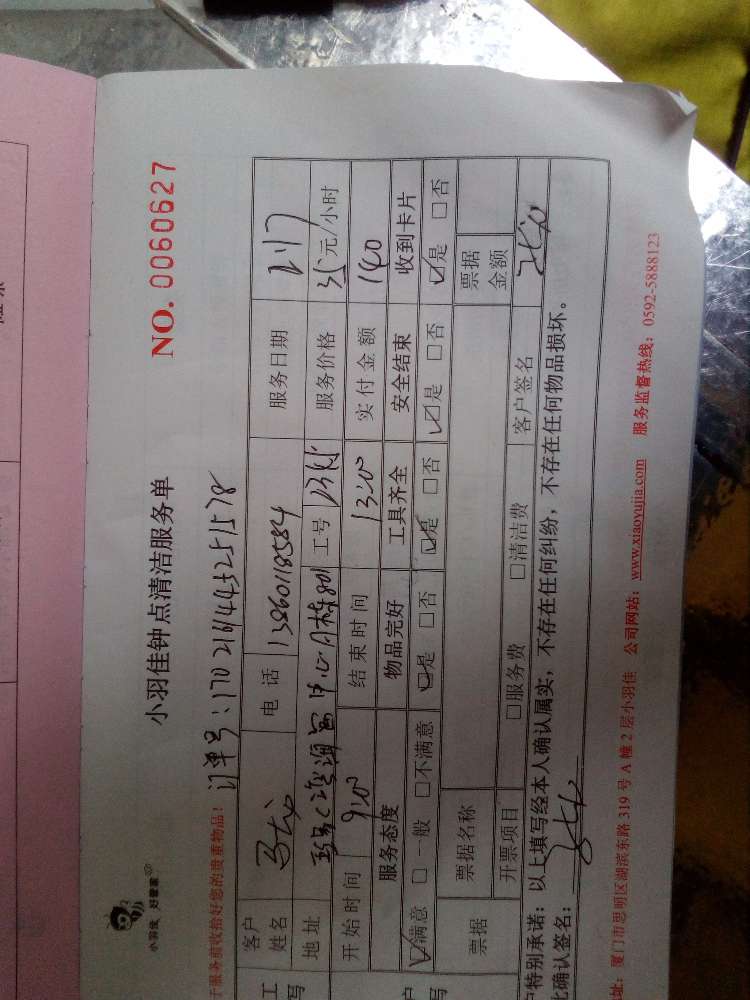 小羽佳 好管家
小羽佳钟点清洁服务单
NO. 0060627
于服务前收拾好您的贵重物品! 订单号:
客户姓名 电话 13860118584 服务日期 2.17
地址 工号 服务价格 35元/小时
开始时间 9:00 结束时间 13:00 实付金额 140
服务态度 物品完好 工具齐全 安全结束 收到卡片
☑满意 □一般 □不满意 ☑是 □否 ☑是 □否 ☑是 □否 ☑是 □否
票据 票据名称 票据金额
开票项目 □服务费 □清洁费 客户签名
户特别承诺:以上填写经本人确认属实,不存在任何纠纷,不存在任何物品损坏。
此确认签名:
址:厦门市思明区湖滨东路 319 号 A 幢 2 层小羽佳 公司网站:www.xiaoyujia.com 服务监督热线:0592-5888123